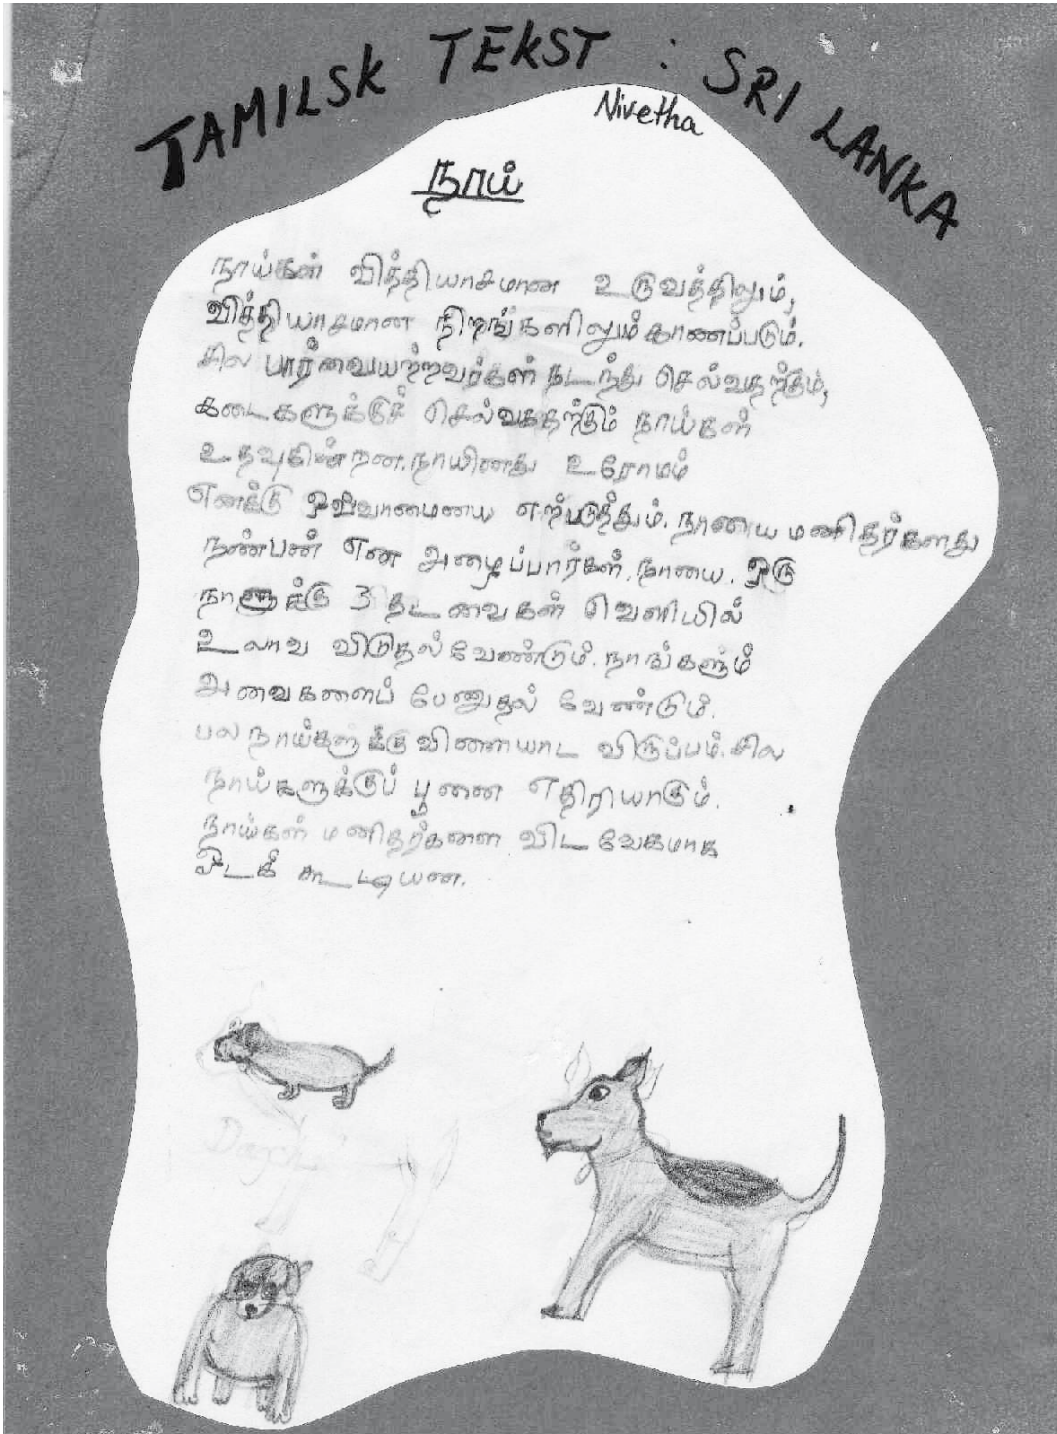 TAMILSK TEKST : SRI LANKA
Nivetha
நாய்
நாய்கள் வித்தியாசமான உருவத்திலும்,
வித்தியாசமான நிறங்களிலும் காணப்படும்.
சில பார்வையற்றவர்கள் நடந்து செல்வதற்கும்,
கடைகளுக்குச் செல்வதற்கும் நாய்கள்
உதவுகின்றன. நாயினது உரோமம்
எனக்கு ஒவ்வாமையை எற்படுத்தும். நாயை மனிதர்களது
நண்பன் என அழைப்பார்கள். நாயை. ஒரு
நாளுக்கு 3 தடவைகள் வெளியில்
உலாவ விடுதல் வேண்டும். நாங்களும்
அவைகளைப் பேணுதல் வேண்டும்.
பல நாய்களுக்கு விளையாட விருப்பம். சில
நாய்களுக்குப் பூனை எதிரியாகும்.
நாய்கள் மனிதர்களை விட வேகமாக
ஓடக் கூடியன.